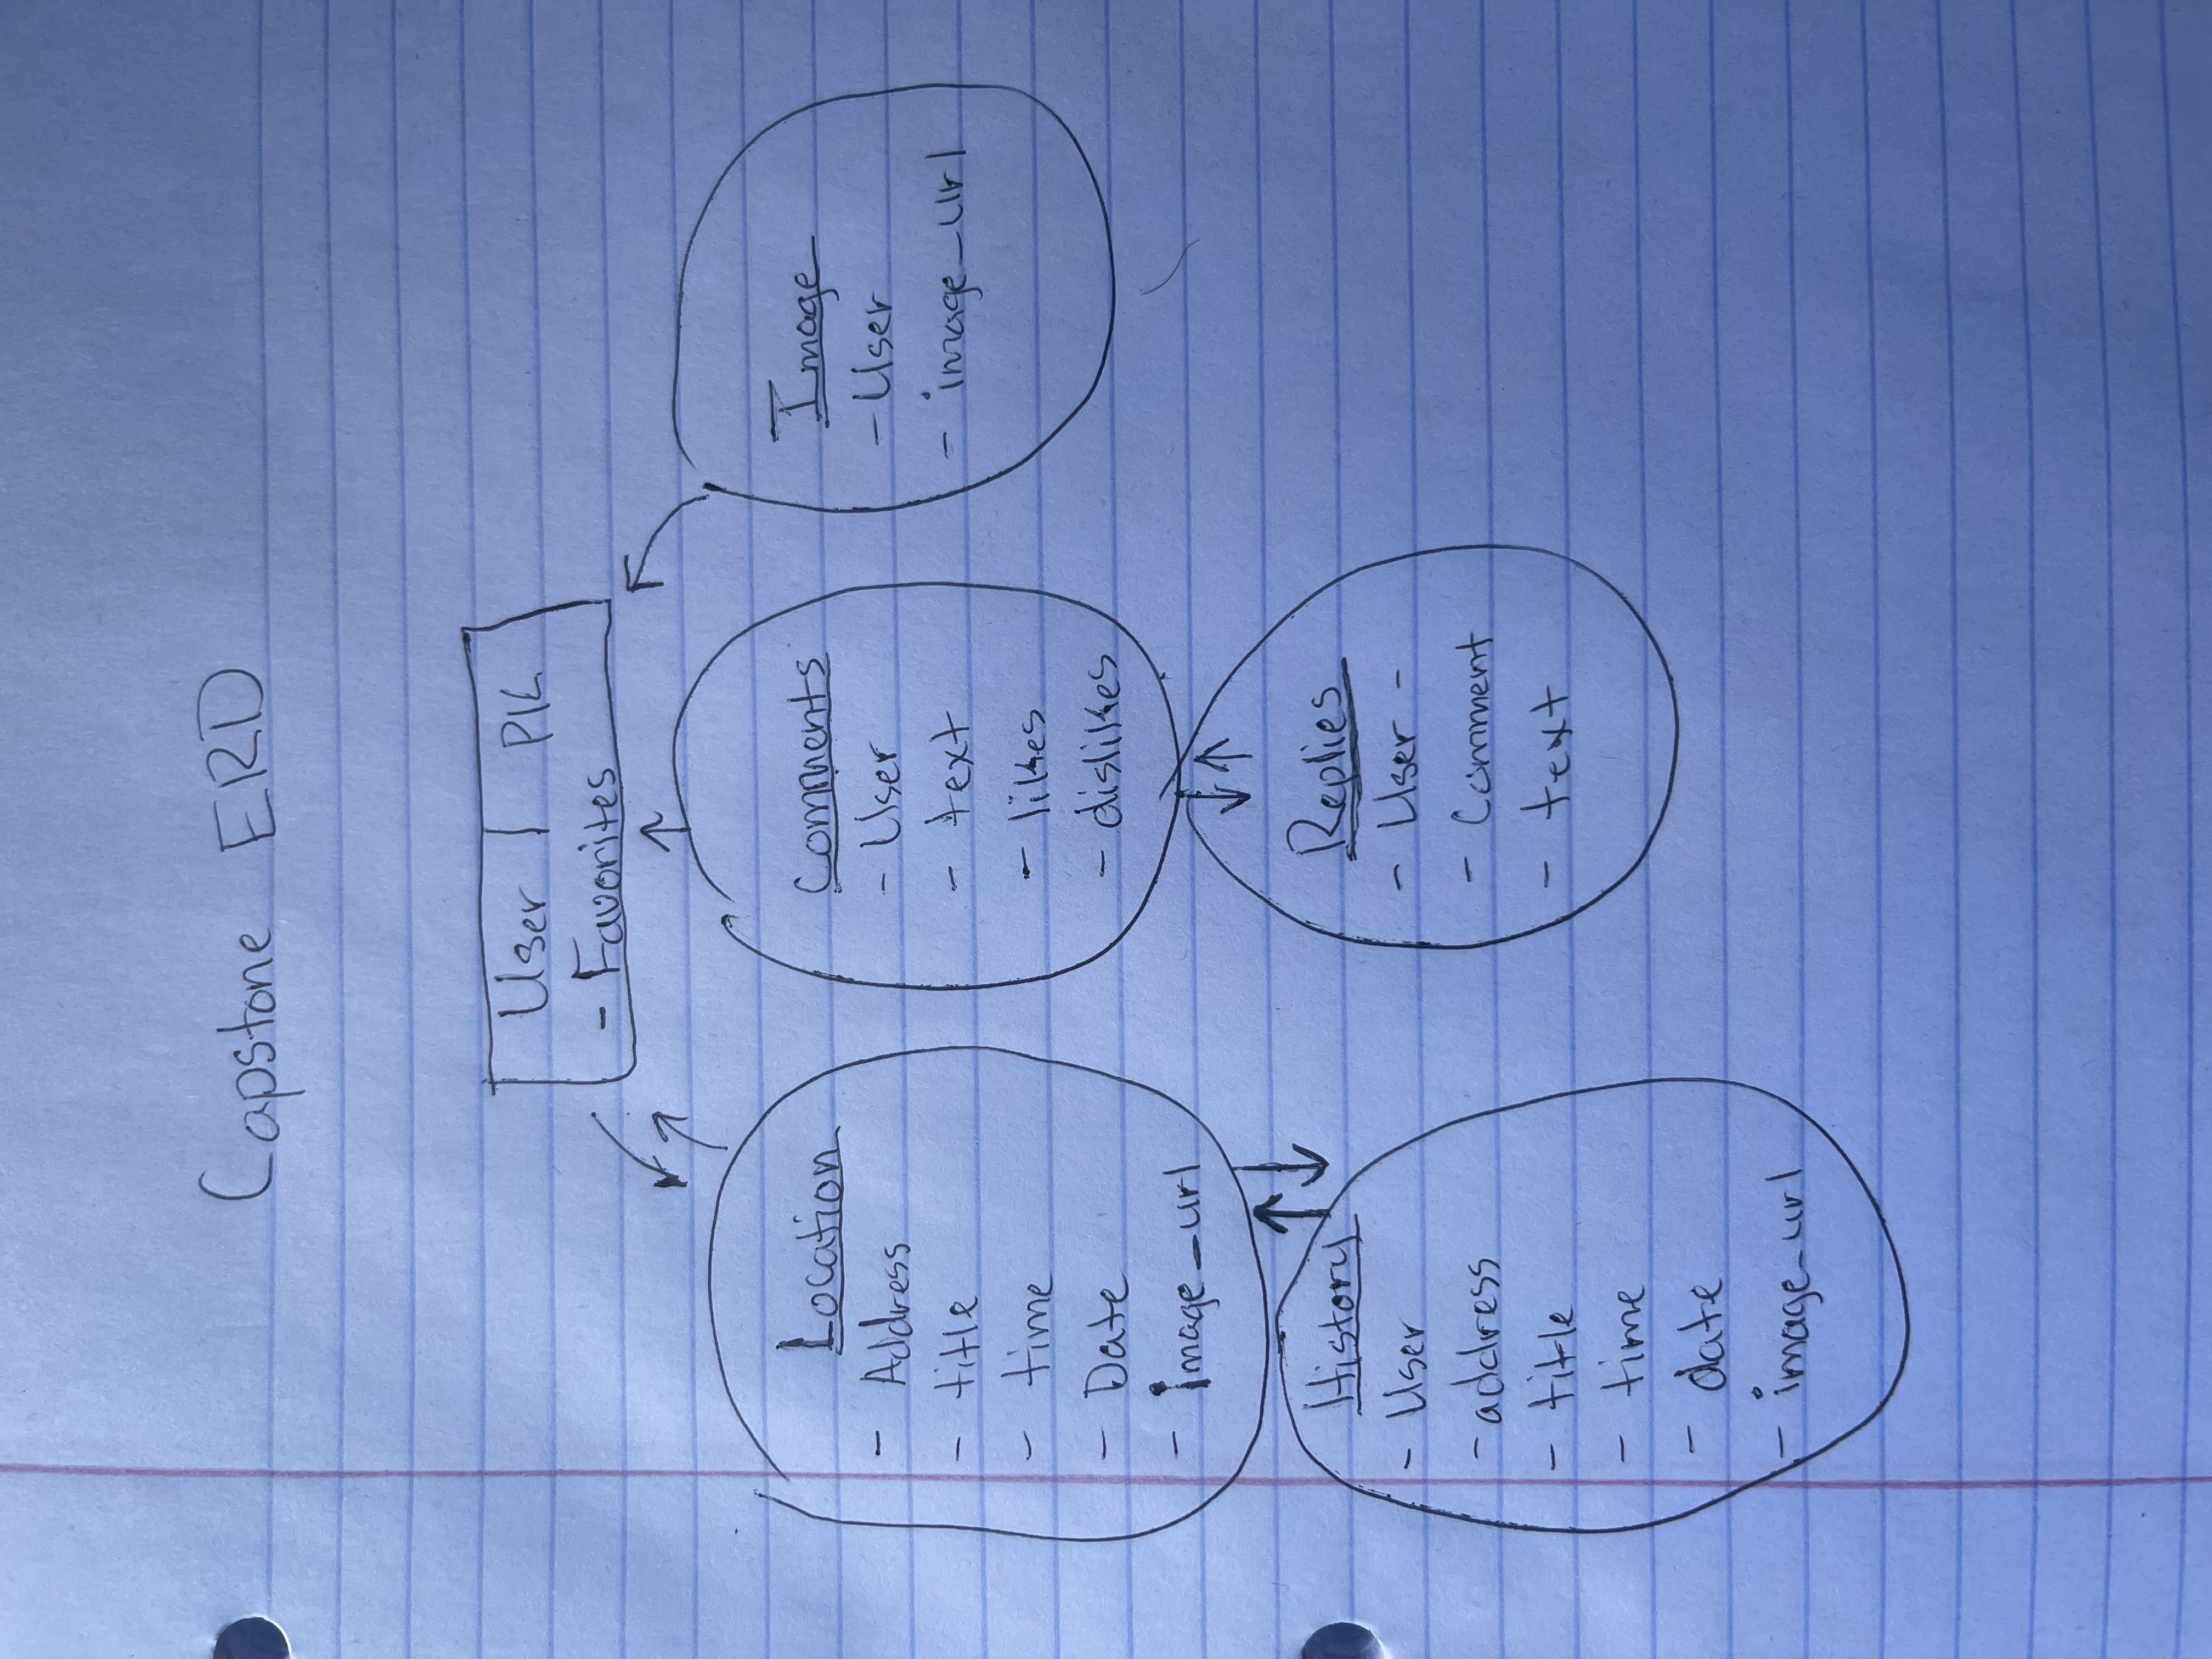 Capstone ERD
User | PK
- Favorites
Location
- Address
- title
- time
- Date
- image_url
Comments
- User
- text
- likes
- dislikes
Image
- User
- image_url
History
- User
- address
- title
- time
- date
- image_url
Replies
- User -
- Comment
- text